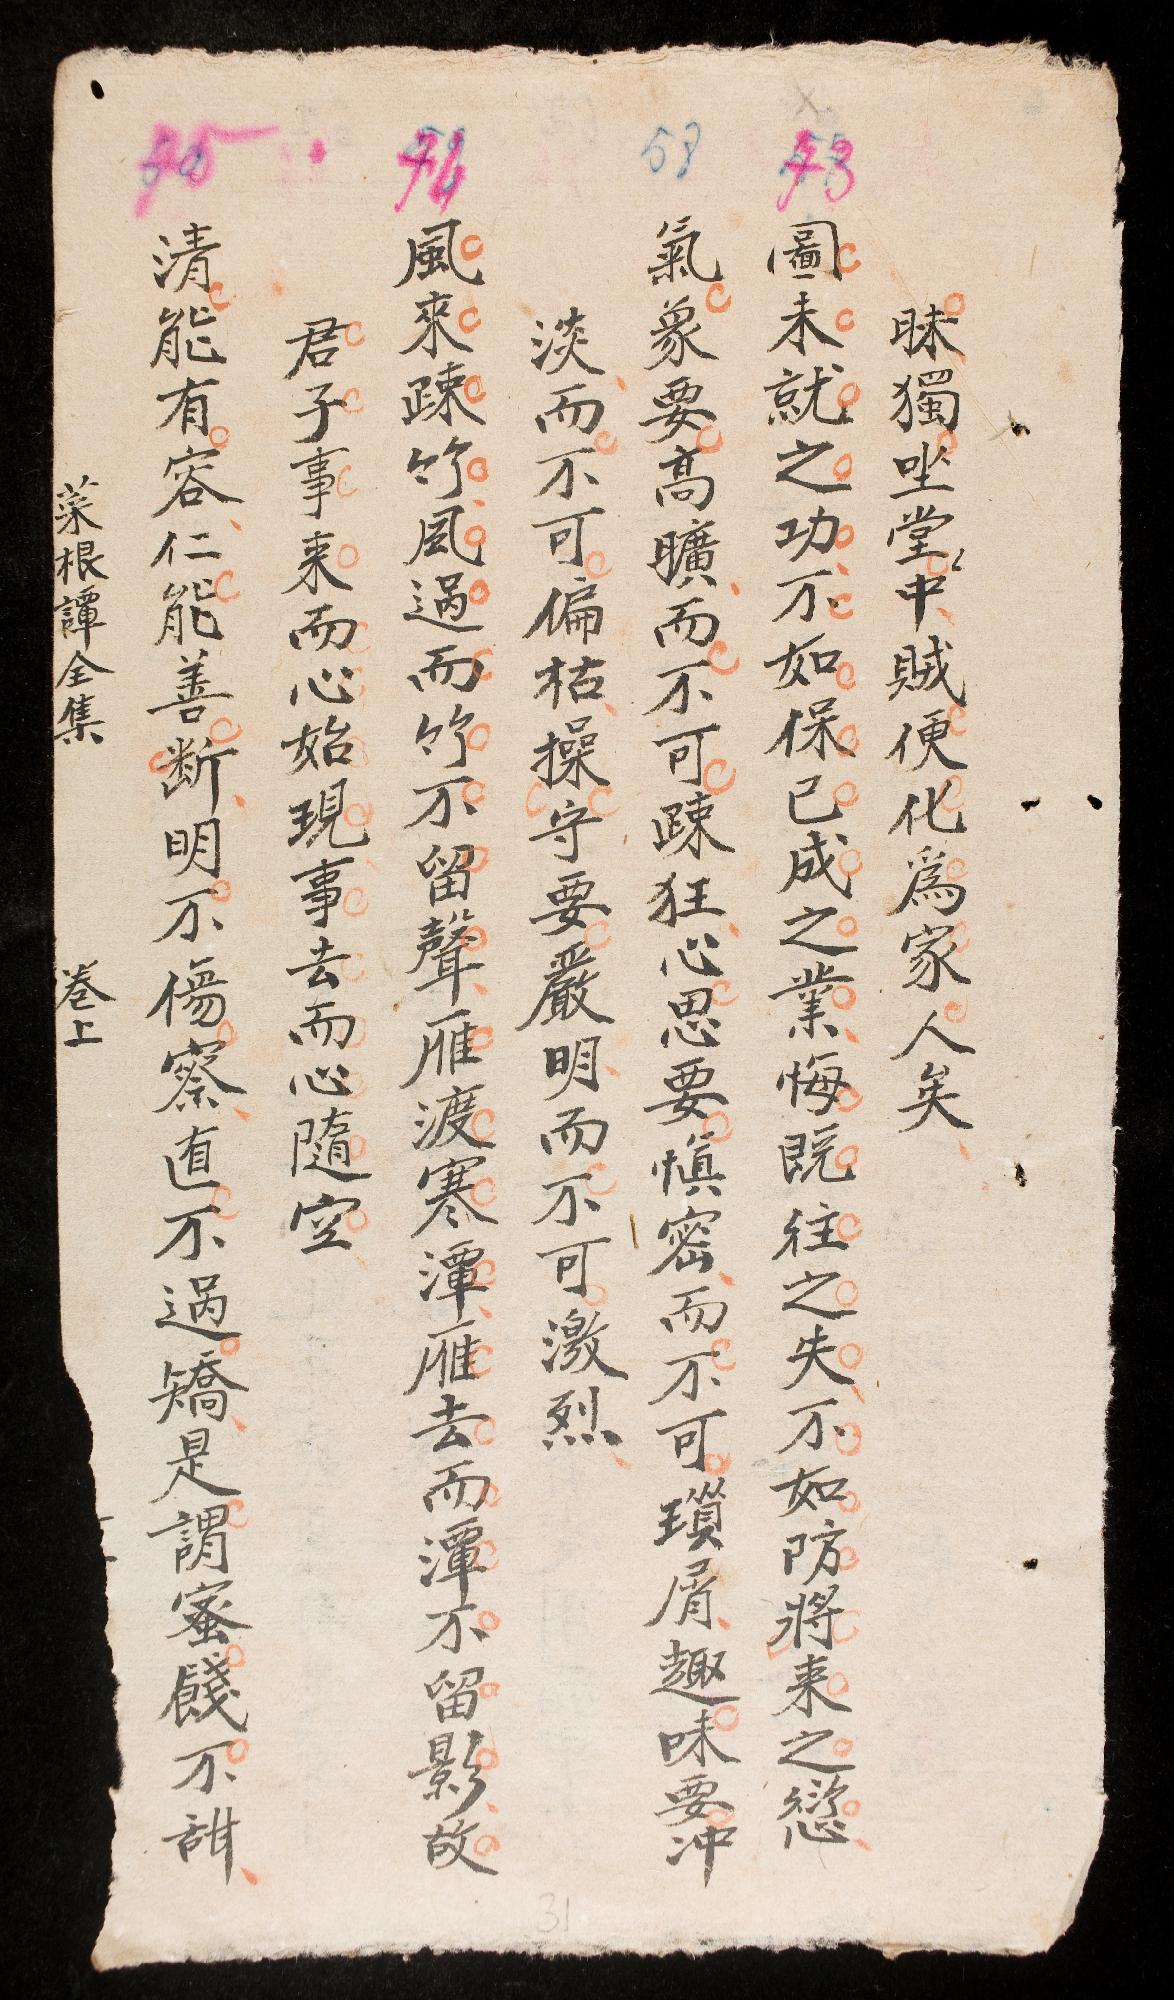 昧獨坐堂中賊便化爲家人矣
圖未就之功不如保已成之業悔既往之失不如防將来之愆
氣象要高曠而不可踈狂心思要慎密而不可瑣屑趣味要冲
淡而不可偏枯操守要嚴明而不可激烈
風來踈竹風過而竹不留聲雁渡寒潭雁去而潭不留影故
君子事来而心始現事去而心隨空
清能有容仁能善断明不傷察直不過矯是謂蜜餞不甜
菜根譚全集 卷上
58
31